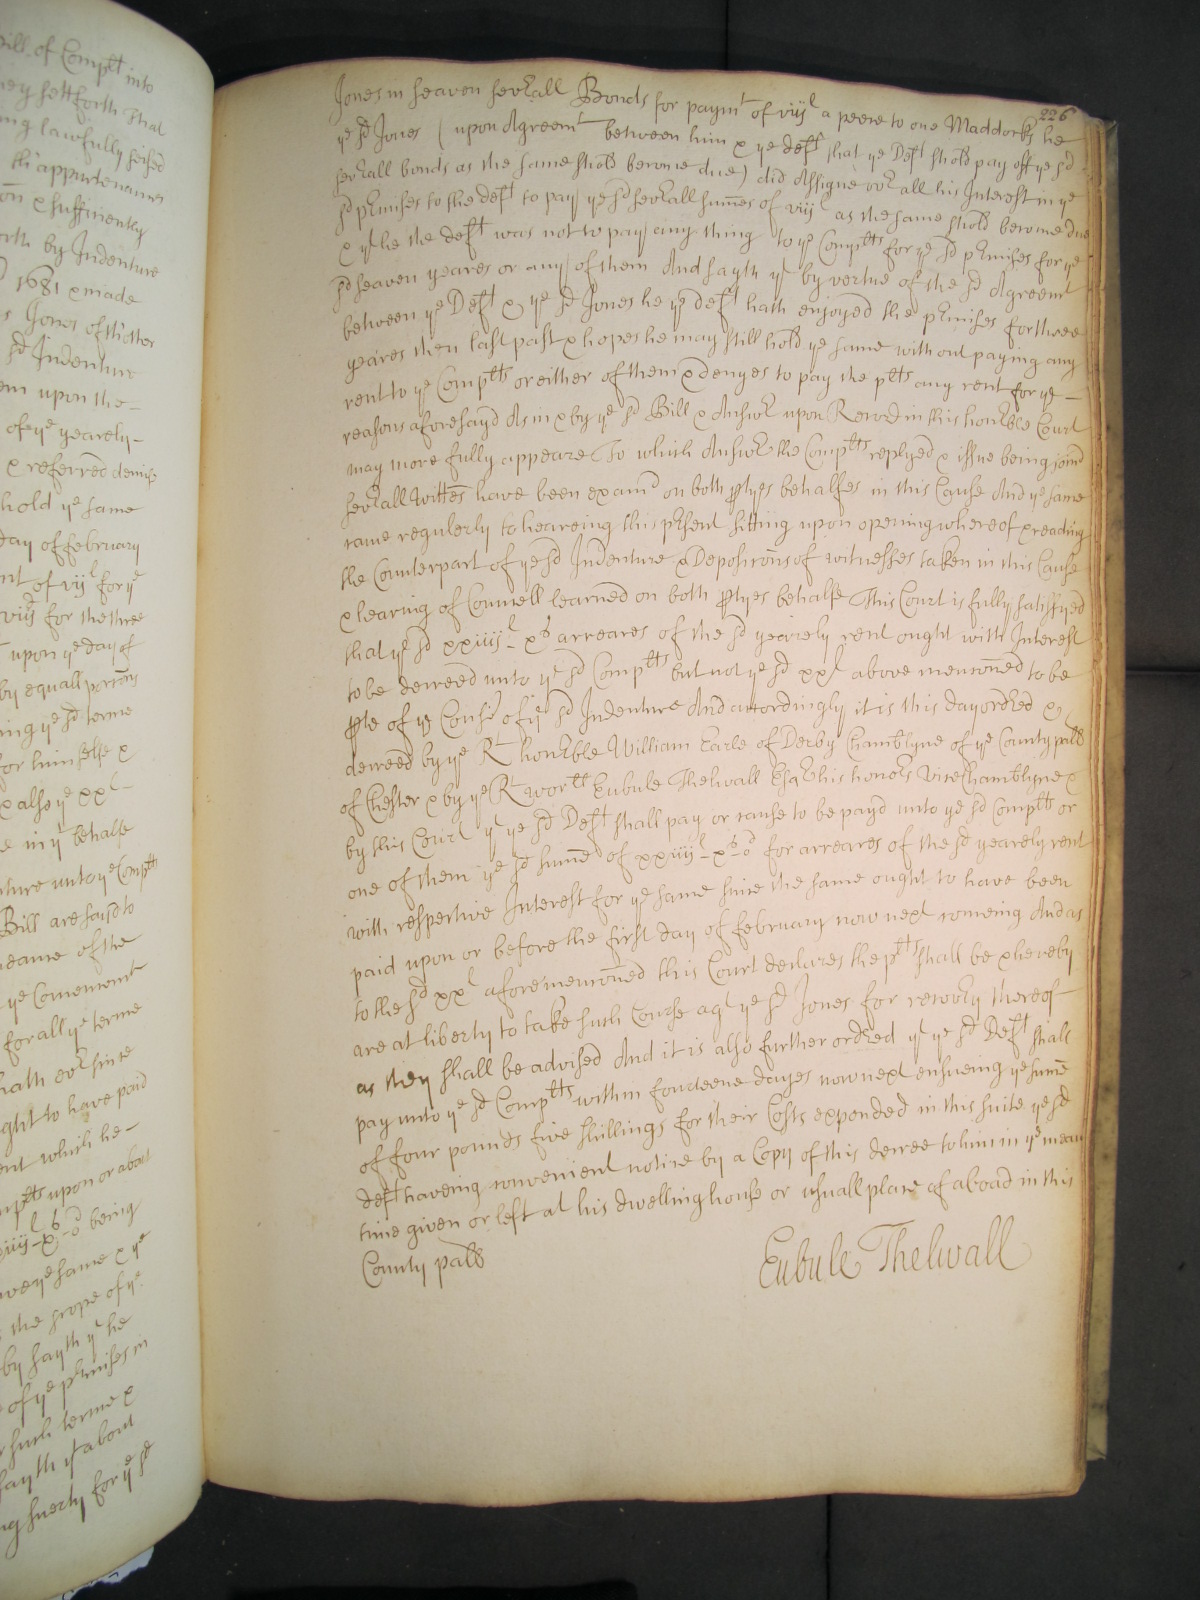 Bill of Compltt into
they sett forth that
ing lawfully seised
th' appurtenances
on & sufficiently
orth by Indenture
1681 & made
s Jones of th'other
sd Indenture
em upon the
of ye yearely
& referred demise
hold ye same
day of february
nt of vijl for ye
viijl for the three
upon ye day of
by equall portions
ing ye sd terme
for himselfe &
& also ye xxl
in yt behalfe
nture unto ye Compltt
Bill are said to
of the
ye Comencemt
for all ye terme
hath ever since
ght to have paid
ent which he
mpltts upon or about
being
ye same & ye
the scope of ye
by sayth yt he
of ye prmises in
such terme &
sayth yt about
suerty for ye sd
226
Jones in seaven severall Bonds for paymt of viijl a peece to one Maddocks he
ye sd Jones (upon Agreemt between him & ye deft that ye Deft shold pay off ye sd
severall bonds as the same shold become due) did Assigne over all his Interest in ye
sd prmises to the deft to pay ye sd severall summes of viijl as the same shold become due
& yt he the deft was not to pay any thing to ye Compltts for ye sd prmises for ye
sd seaven yeares or any of them And sayth yt by vertue of the sd Agreemt
between ye Deft & ye sd Jones he ye deft hath enjoyed the prmises for three
yeares then last past & hopes he may still hold ye same without paying any
rent to ye Compltts or either of them & denyes to pay the pltts any rent for ye
reasons aforesayd As in & by ye sd Bill & Answr upon Record in this honrble Court
may more fully appeare To which Answr the Compltts replyed & issue being joined
severall Wittes have been examd on both ptyes behalfes in this Cause And ye same
came regulerly to heareing this prsent sitting upon opening whereof & reading
the Counterpart of ye sd Indenture & Depositions of witnesses taken in this Cause
& hearing of Councell learned on both ptyes behalfe This Court is fully satisfyed
that ye sd xxiiijl xs arreares of the sd yearely rent ought with Interest
to be decreed unto ye sd Compltts but not ye sd xxl above mencioned to be
pte of ye Consid of ye sd Indenture And accordingly it is this day ordred &
decreed by ye Rt honrble William Earle of Derby Chamblyne of ye County pall
of Chester & by ye Rt worll Eubule Thelwall Esqr his honors Vice Chamblyne &
by this Court yt ye sd Deft shall pay or cause to be payd unto ye sd Compltts or
one of them ye sd sume of xxiiijl xs d for arreares of the sd yearely rent
with respective Interest for ye same since the same ought to have been
paid upon or before the first day of february now next comeing And as
to the sd xxl aforemencioned this Court declares the pltts shall be & hereby
are at liberty to take such Course agt ye sd Jones for recovery thereof
as they shall be advised And it is also further ordred yt ye sd Deft shall
pay unto ye sd Compltts within fourteene dayes now next ensueing ye sume
of four pounds five shillings for their Costs expended in this suite ye sd
deft haveing convenient notice by a Copy of this decree to him in ye mean
time given or left at his dwelling house or usuall place of aboad in this
County pall
Eubule Thelwall